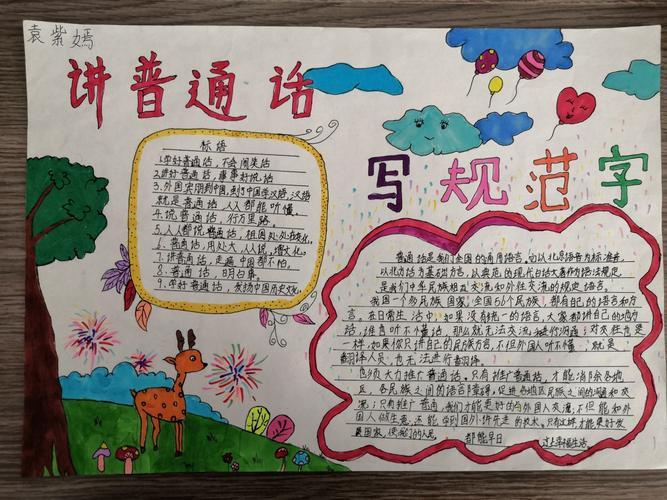 袁紫嫣
讲普通话
写规范字
标语
1.学好普通话,不会闹笑话
2.讲好普通话,事事好说话
3.外国宾朋到中国,到中国学汉语,汉语
就是普通话,人人都能听懂。
4.说普通话,行万里路。
5.人人都说普通话,祖国处处
6.普通话,用处大,人人说,
7.讲普通话,走遍中国都不怕。
8.普通话,明白事。
9.学好普通话,发扬中国历史文化。
普通话是我们全国的通用语言,它以北京语音为标准音,
以北方话为基础方言,以典范的现代白话文著作为语法规定,
是我们中华民族相互交流和外往交流的规定语言。
我国一个多民族国家,全国56个民族,都有自己的语言和方
言,在日常生活中,如果没有统一的语言,大家都讲自己的地方
话,谁也听不懂话,那么就无法交流、进行沟通;对交往也是
一样,如果你只讲自己的民族方言,不但外国人听不懂,就是
翻译人员,也无法进行翻译。
也须大力推广普通话。只有推广普通话,才能消除各地
区,各民族之间的语言障碍,促进各地区民族之间的沟通和交
流;只有推广普通,我们才能是好的与外国人交流,不但能和外国
人做生意,还能学到国外的先进的技术。只有这样才能更好发
展国家,使我们的人民 都能早日 过上幸福生活